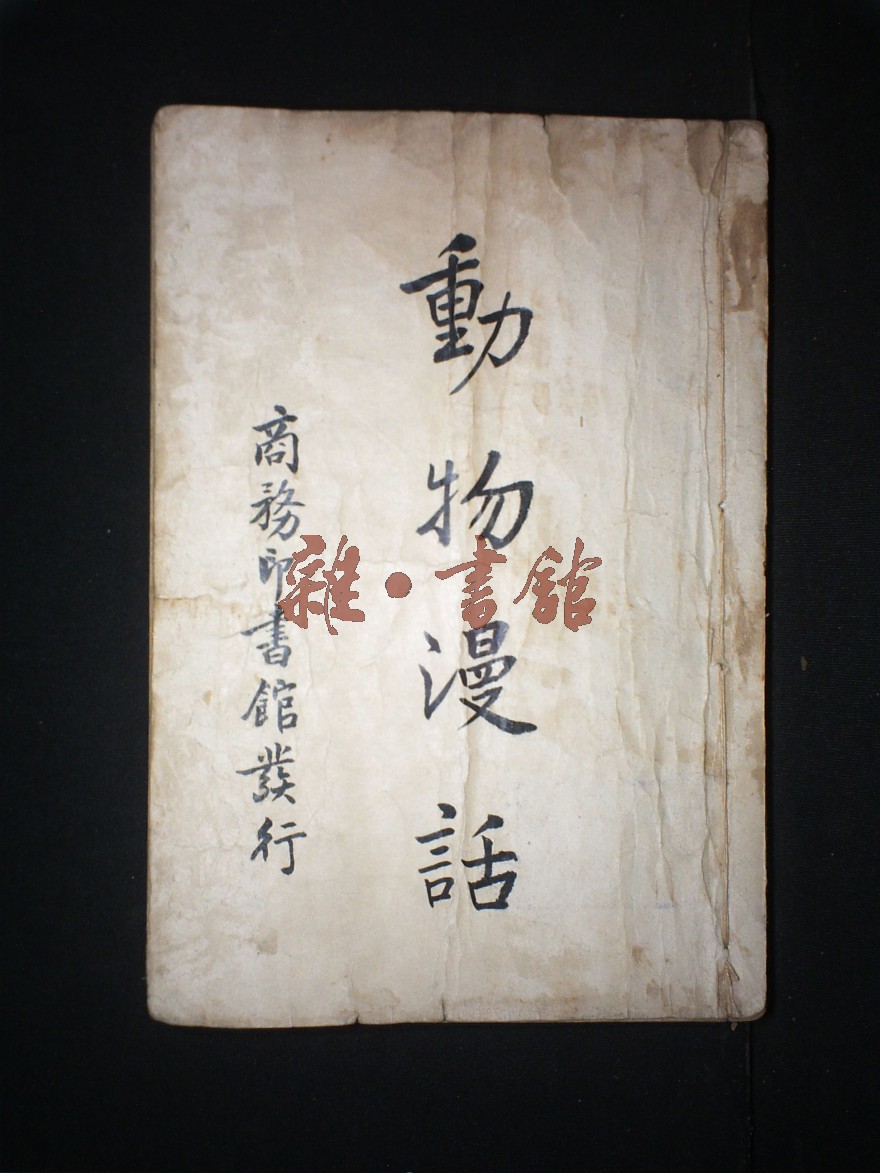 動物漫話
商務印書館發行
雜·書館